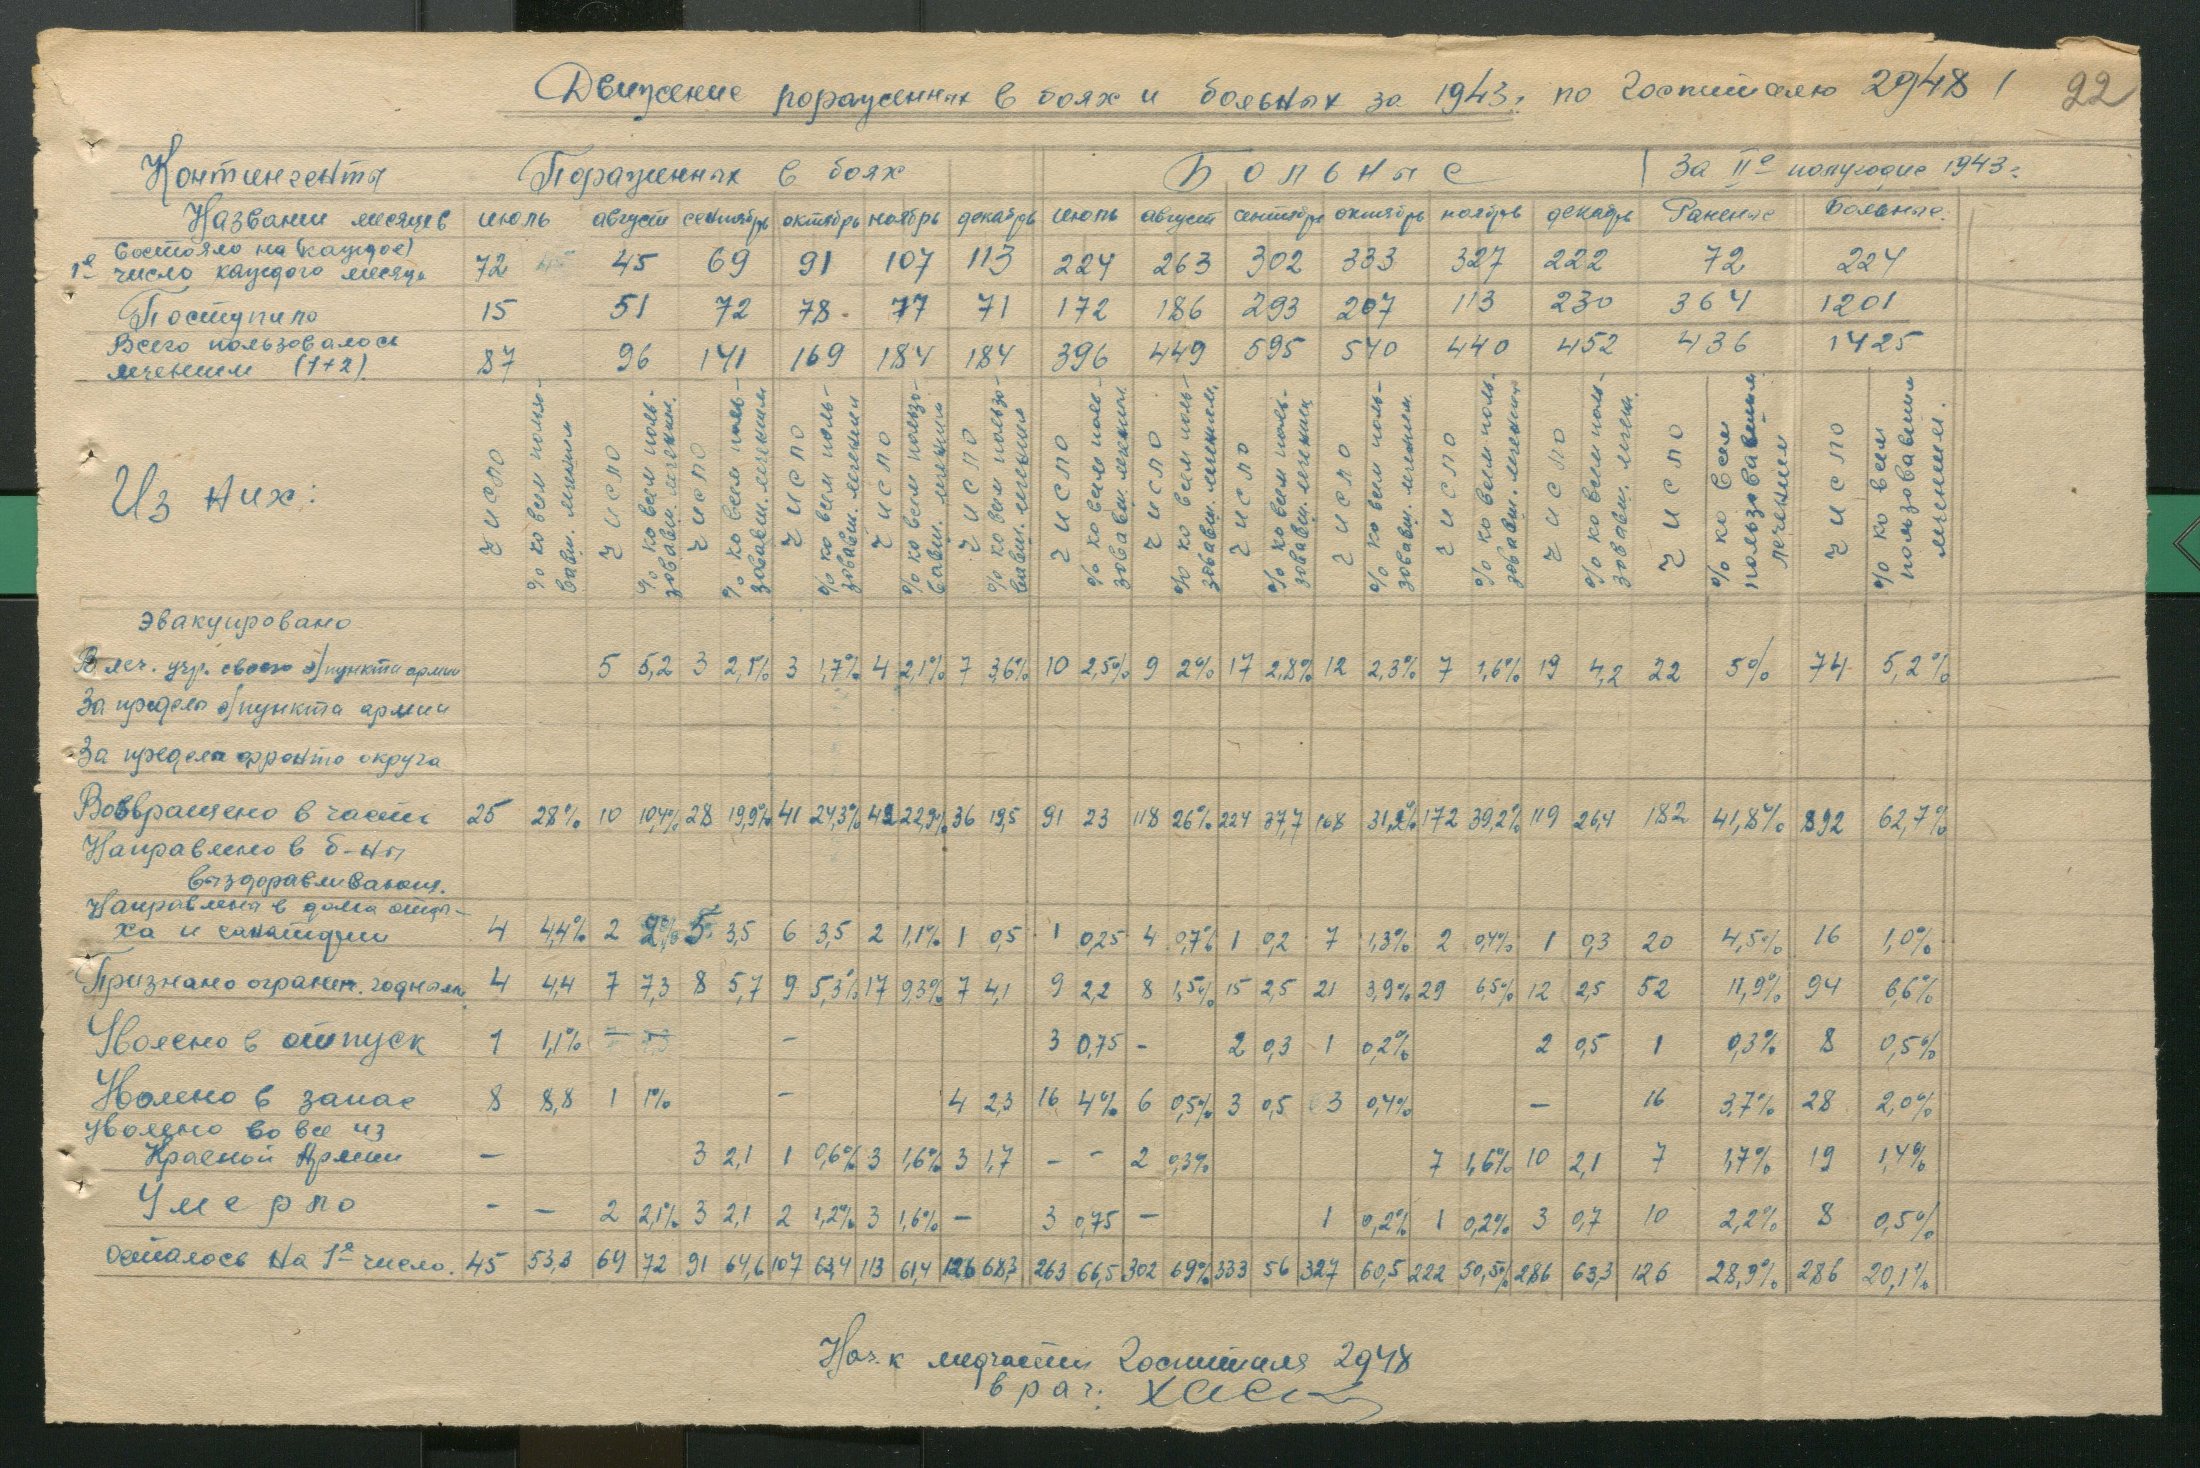 Движение поражённых в боях и больных за 1943г. по госпиталю 2948 22
Контингенты Поражённых в боях Больные За IIе полугодие 1943г.
Название месяцев июль август сентябрь октябрь ноябрь декабрь июль август сентябрь октябрь ноябрь декабрь Раненые Больные
Состояло на (каждое)
1е число каждого месяца 72 45 69 91 107 113 224 263 302 333 327 222 72 224
Поступило 15 51 72 78 77 71 172 186 293 207 113 230 364 1201
Всего пользовалось
лечением (1+2) 87 96 141 169 184 184 396 449 595 540 440 452 436 1425
Из них:
Число % ко всем пользовавш. лечением Число % ко всем пользовавш. лечением Число % ко всем пользовавш. лечением Число % ко всем пользовавш. лечением Число % ко всем пользовавш. лечением Число % ко всем пользовавш. лечением Число % ко всем пользовавш. лечением Число % ко всем пользовавш. лечением Число % ко всем пользовавш. лечением Число % ко всем пользовавш. лечением Число % ко всем пользовавш. лечением Число % ко всем пользовавш. лечен. Число % ко всем пользовавшим. лечением Число % ко всем пользовавшим лечением.
Эвакуировано
В леч. учр. своего э/пункта армии 5 5,2 3 2,1% 3 1,7% 4 2,1% 7 3,6% 10 2,5% 9 2% 17 2,8% 12 2,3% 7 1,6% 19 4,2 22 5% 74 5,2%
За пределы э/пункта армии
За пределы фронта округа
Возвращено в часть 25 28% 10 10,4% 28 19,9% 41 24,3% 42 22,9% 36 19,5 91 23 118 26% 224 37,7 168 31,2% 172 39,2% 119 26,4 182 41,8% 892 62,7%
Направлено в б-ны
выздоравливающ.
Направлена в дома отды-
ха и санатории 4 4,4% 2 2% 5 3,5 6 3,5 2 1,1% 1 0,5 1 0,25 4 0,7% 1 0,2 7 1,3% 2 0,4% 1 0,3 20 4,5% 16 1,0%
Признано огранич. годными 4 4,4 7 7,3 8 5,7 9 5,3% 17 9,3% 7 4,1 9 2,2 8 1,5% 15 2,5 21 3,9% 29 6,5% 12 2,5 52 11,9% 94 6,6%
Уволено в отпуск 1 1,1% - - 3 0,75 - 2 0,3 1 0,2% 2 0,5 1 0,3% 8 0,5%
Уволено в запас 8 8,8 1 1% - 4 2,3 16 4% 6 0,5% 3 0,5 3 0,4% - 16 3,7% 28 2,0%
Уволено вовсе из
Красной Армии - 3 2,1 1 0,6% 3 1,6% 3 1,7 - - 2 0,3% 7 1,6% 10 2,1 7 1,7% 19 1,4%
Умерло - - 2 2,1% 3 2,1 2 1,2% 3 1,6% - 3 0,75 - 1 0,2% 1 0,2% 3 0,7 10 2,2% 8 0,5%
Осталось на 1е число. 45 53,3 69 72 91 64,6 107 63,4 113 61,4 126 68,3 263 66,5 302 69% 333 56 327 60,5 222 50,5% 286 63,3 126 28,9% 286 20,1%
Нач.к медчасти госпиталя 2948
врач: